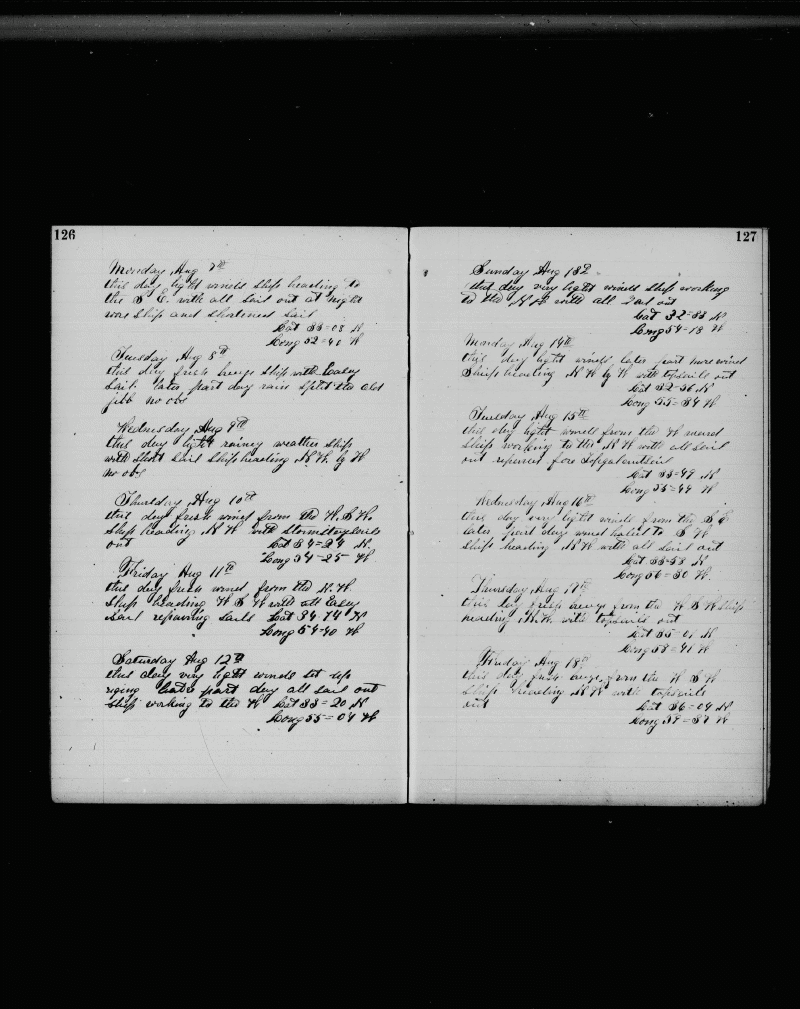 126
Monday Aug 7th
this day light winds Ship heading to
the S E. with all Sail out at night
wore Ship and Shortened Sail
Lat 33=03 N
Long 52=40 W
Tuesday Aug 8th
this day fresh breeze Ship with Easey
Sail later part day rain Split the old
jibb no obs
Wednesday Aug 9th
this day light rainey weather Ship
with Short Sail Ship heading N.W. by W
no obs
Thursday Aug 10th
this day fresh wind from the W.S.W.
Ship heading N W with Stormstaysails
out Lat 34=24 N.
Long 54=25 W
Friday Aug 11th
this day fresh wind from the N.W.
Ship heading W S W with all Easey
Sail repairing Sails Lat 34 14 N
Long 54=40 W
Saturday Aug 12th
this day very light winds set up
riging later part day all Sail out
Ship working to the W Lat 33=20 N
Long 55=04 W
127
Sunday Aug 13
this day very light winds Ship working
to the N W with all Sail out
Lat 32=33 N
Long 54=18 W
Monday Aug 14th
this day light winds, later part more wind
Ship heading N W by W with topsails out
Lat 32=56 N
Long 55=34 W
Tuesday Aug 15th
this day light winds from the W ward
Ship working to the N W with all Sail
out repaired fore Topgalantsail
Lat 33=49 N
Long 55=44 W
Wednesday Aug 16th
this day very light winds from the S E
later part day wind hailed to S W
Ship heading N W with all Sail out
Lat 33=58 N
Long 56=30 W.
Thursday Aug 17th
this day fresh breeze from the W S W Ship
heading N.W. with topsails out
Lat 35=01 N
Long 58=41 W
Friday Aug 18th
this day fresh breeze from the W S W
Ship heading N W with topsails
out Lat 36=04 N
Long 59=37 W